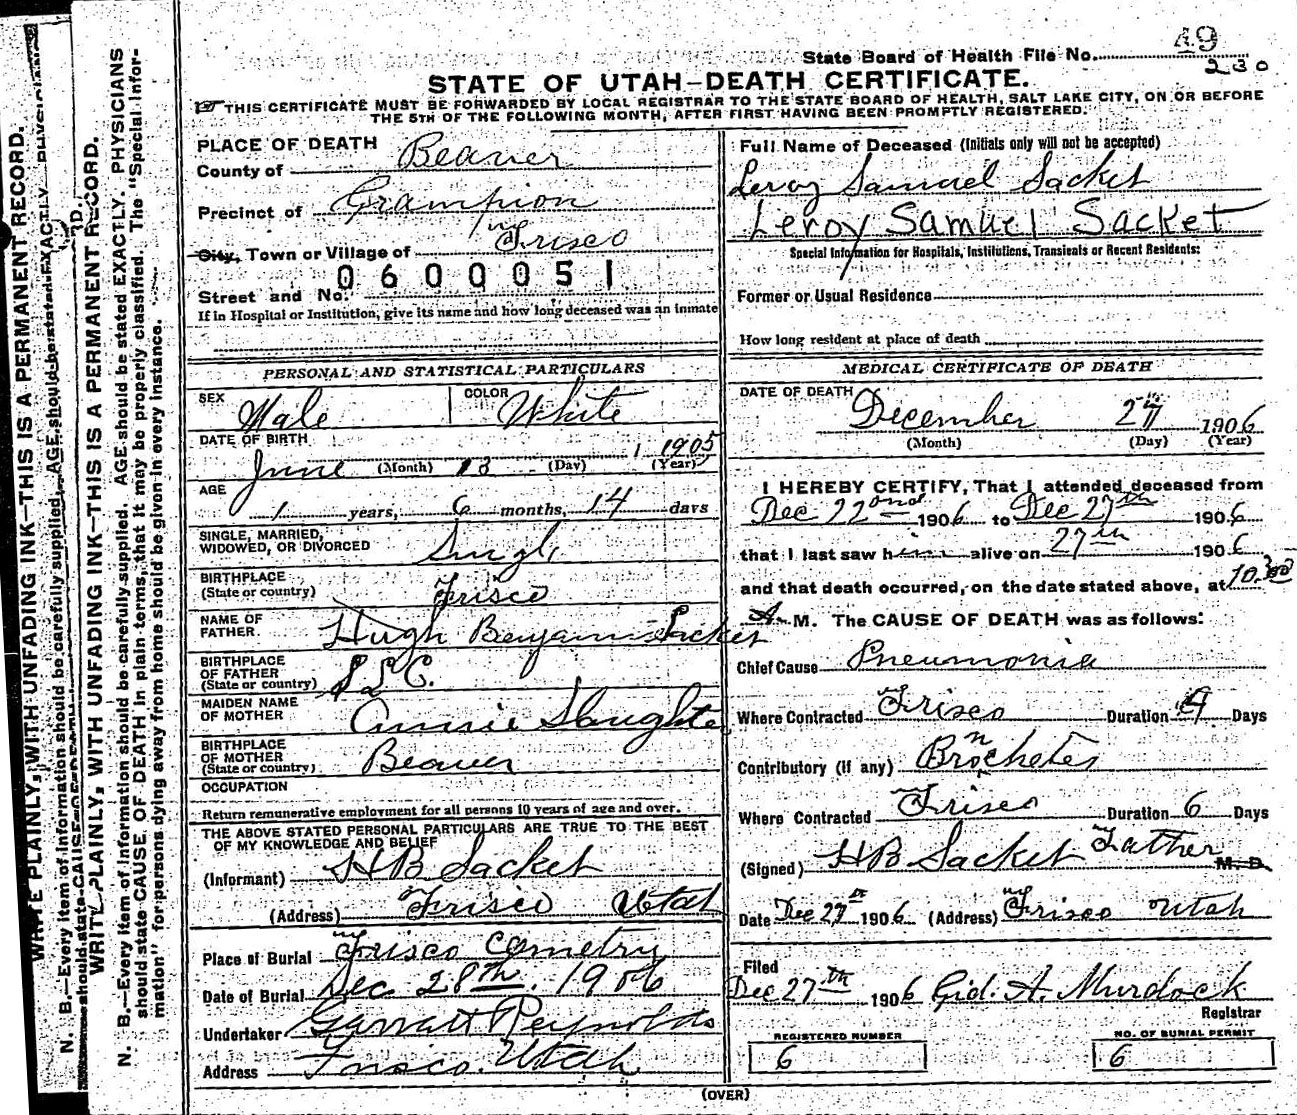 State Board of Health File No. 49
230
STATE OF UTAH—DEATH CERTIFICATE.
THIS CERTIFICATE MUST BE FORWARDED BY LOCAL REGISTRAR TO THE STATE BOARD OF HEALTH, SALT LAKE CITY, ON OR BEFORE
THE 5TH OF THE FOLLOWING MONTH, AFTER FIRST HAVING BEEN PROMPTLY REGISTERED.
PLACE OF DEATH
County of Beaver
Precinct of Grampion
City, Town or Village of Frisco
0600051
Street and No.
If in Hospital or Institution, give its name and how long deceased was an inmate
PERSONAL AND STATISTICAL PARTICULARS
SEX Male COLOR White
DATE OF BIRTH
June (Month) 13 (Day) 1905 (Year)
AGE
1 years, 6 months, 14 days
SINGLE, MARRIED,
WIDOWED, OR DIVORCED Single
BIRTHPLACE
(State or country) Frisco
NAME OF
FATHER Hugh Benjamin Sacket
BIRTHPLACE
OF FATHER
(State or country) S L C.
MAIDEN NAME
OF MOTHER Annie Slaughter
BIRTHPLACE
OF MOTHER
(State or country) Beaver
OCCUPATION
Return remunerative employment for all persons 10 years of age and over.
THE ABOVE STATED PERSONAL PARTICULARS ARE TRUE TO THE BEST
OF MY KNOWLEDGE AND BELIEF
(Informant) H B Sacket
(Address) Frisco Utah
Place of Burial Frisco Cemetry
Date of Burial Dec 28th. 1906
Undertaker Garratt Reynolds
Address Frisco. Utah
Full Name of Deceased (Initials only will not be accepted)
Leroy Samuel Sacket
Leroy Samuel Sacket
Special Information for Hospitals, Institutions, Transients or Recent Residents:
Former or Usual Residence
How long resident at place of death
MEDICAL CERTIFICATE OF DEATH
DATE OF DEATH
December 27th 1906
(Month) (Day) (Year)
I HEREBY CERTIFY, That I attended deceased from
Dec 22nd 1906 to Dec 27th 1906
that I last saw him alive on 27th 1906
and that death occurred, on the date stated above, at 10.30
A. M. The CAUSE OF DEATH was as follows:
Chief Cause Pneumonia
Where Contracted Frisco Duration 4 Days
Contributory (if any) Bronchetes
Where Contracted Frisco Duration 6 Days
(Signed) H B Sacket Father M. D.
Date Dec 27th 1906 (Address) Frisco Utah
Filed
Dec 27th 1906 Gid. A. Murdock
Registrar
REGISTERED NUMBER
6
NO. OF BURIAL PERMIT
6
(OVER)
WRITE PLAINLY, WITH UNFADING INK—THIS IS A PERMANENT RECORD.
N. B.—Every item of information should be carefully supplied. AGE should be stated EXACTLY.
should state CAUSE OF DEATH
WRITE PLAINLY, WITH UNFADING INK—THIS IS A PERMANENT RECORD.
N. B.—Every item of information should be carefully supplied. AGE should be stated EXACTLY. PHYSICIANS
should state CAUSE OF DEATH in plain terms, that it may be properly classified. The "Special Infor-
mation" for persons dying away from home should be given in every instance.